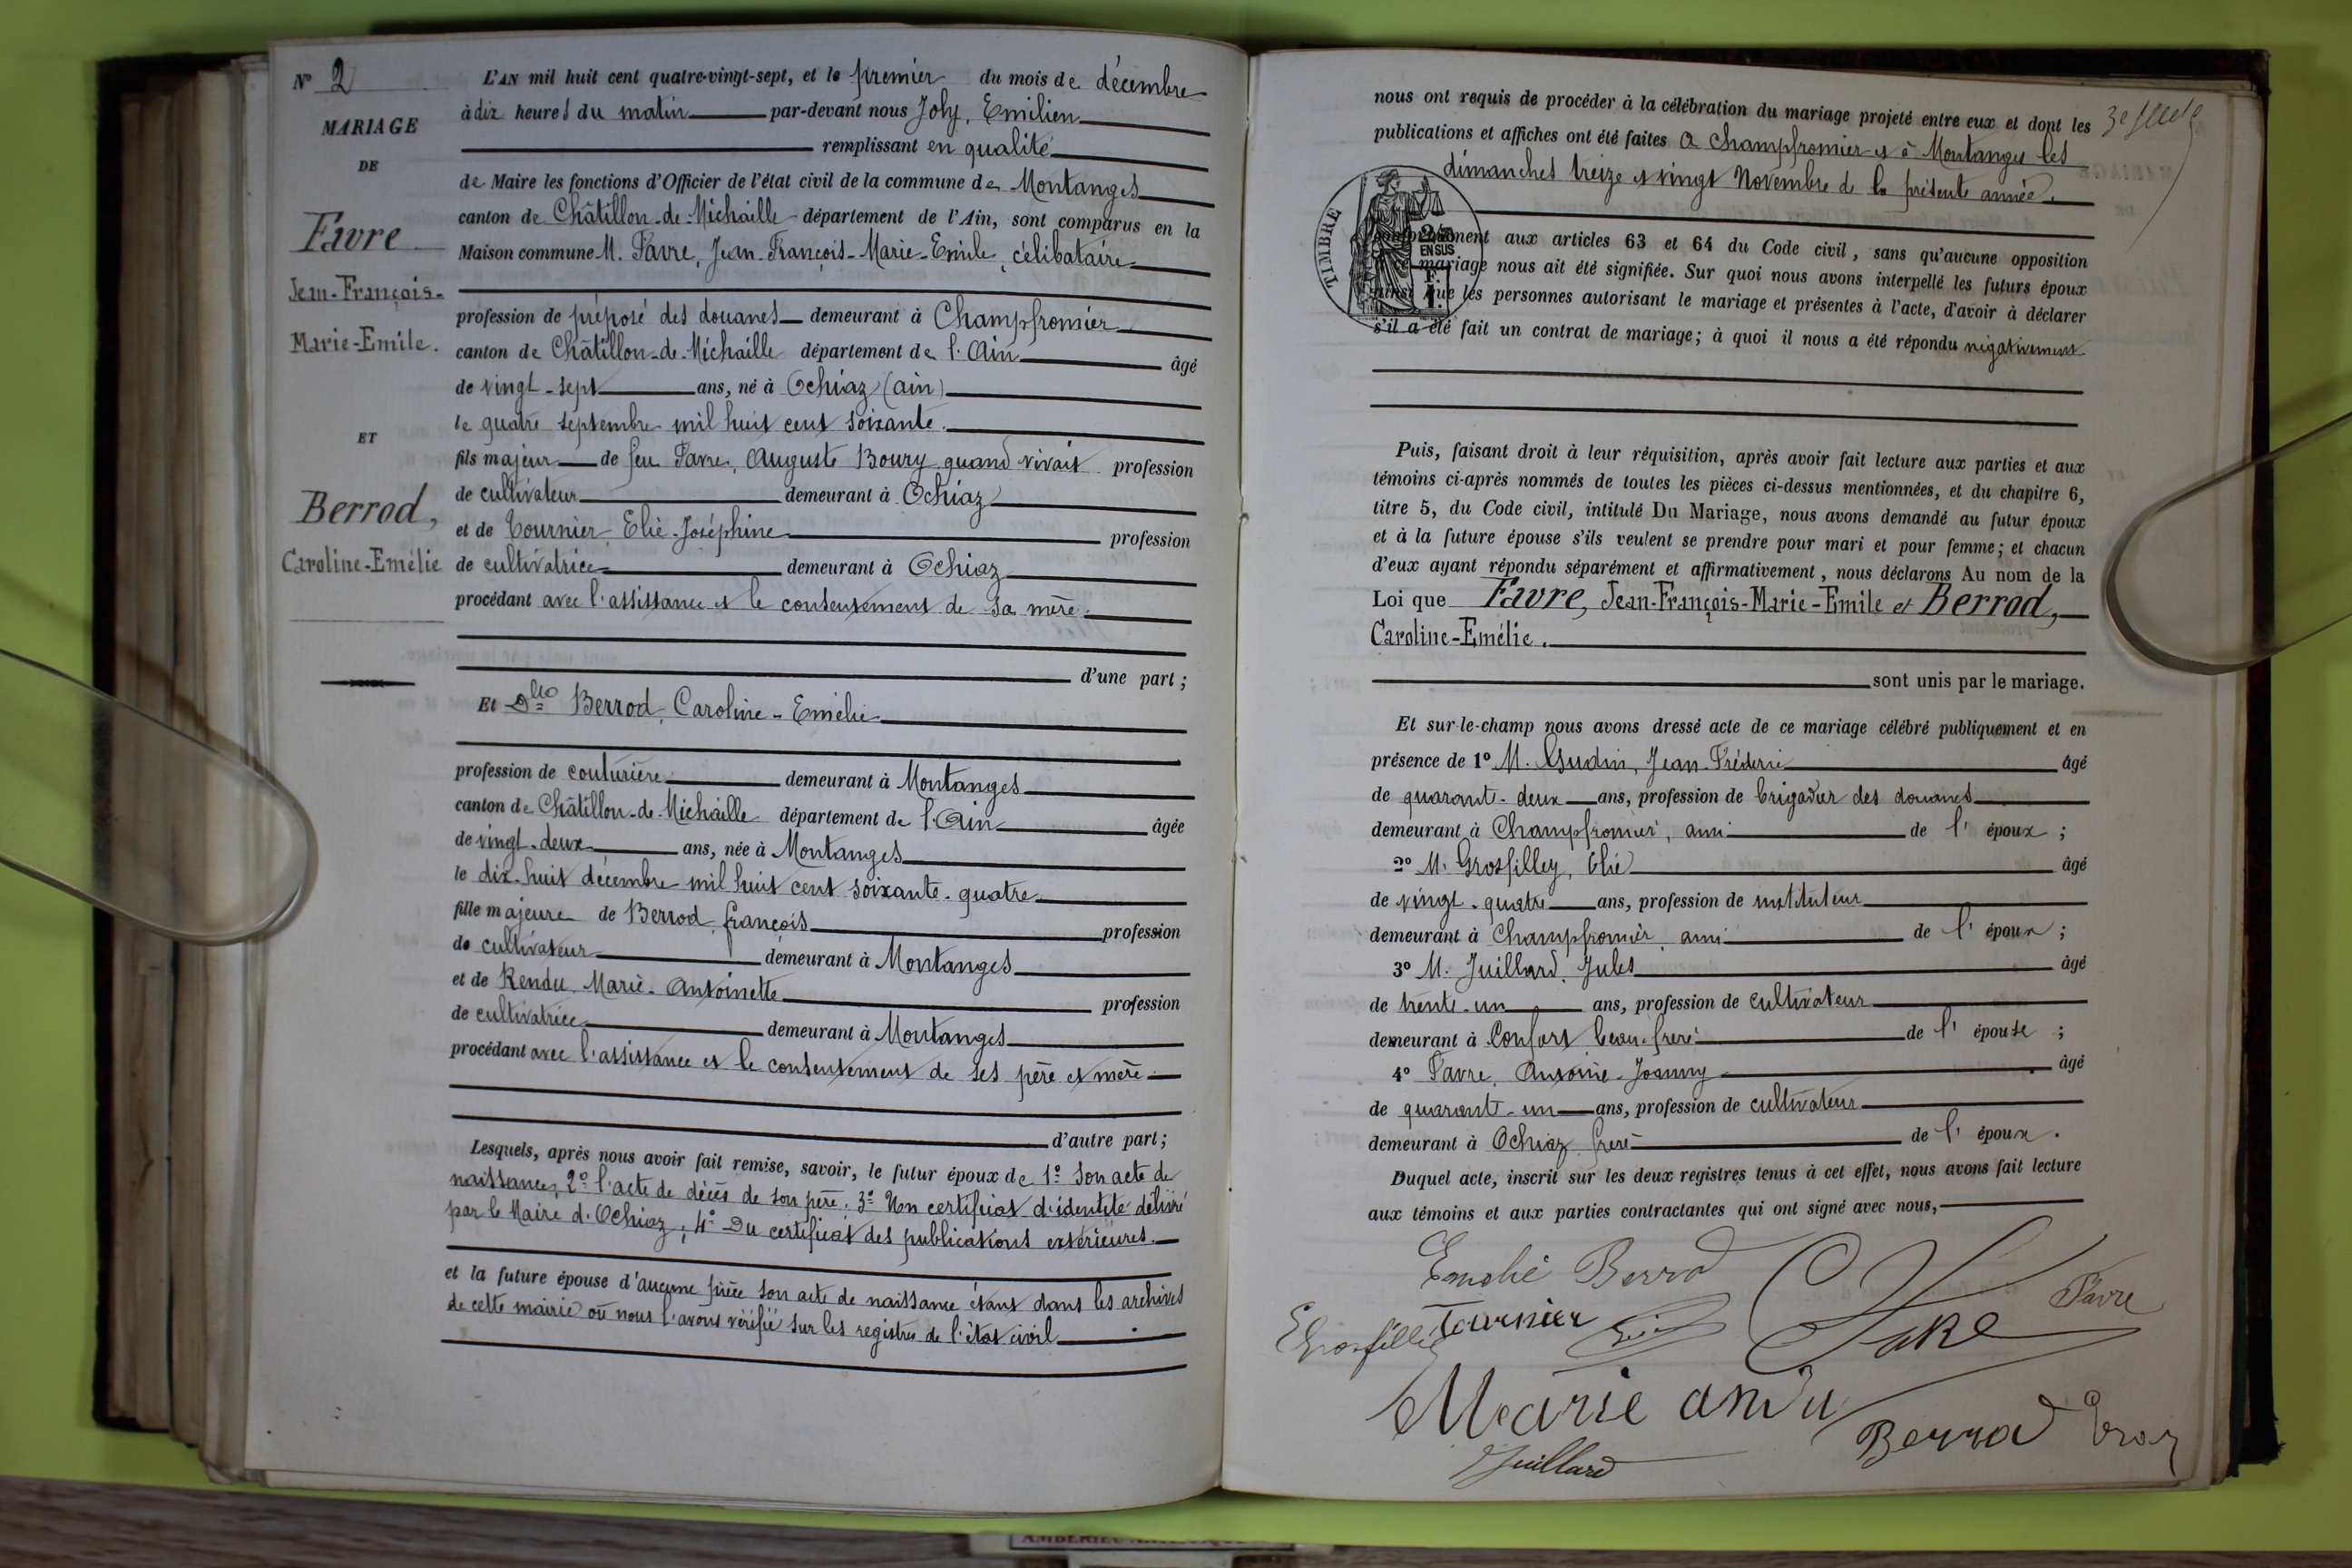 N° 2
MARIAGE
DE
Favre
Jean-François-
Marie-Emile.
ET
Berrod,
Caroline-Emélie
L'AN mil huit cent quatre-vingt-sept, et le premier du mois de décembre
à dix heures du matin par-devant nous Joly, Emilien
remplissant en qualité
de Maire les fonctions d'Officier de l'état civil de la commune de Montanges
canton de Châtillon-de-Michaille département de l'Ain, sont comparus en la
Maison commune M. Favre, Jean-François-Marie-Emile, célibataire
profession de préposé des douanes demeurant à Champfromier
canton de Châtillon-de-Michaille département de l'Ain âgé
de vingt-sept ans, né à Ochiaz (ain)
le quatre septembre mil huit cent soixante.
fils majeur de feu Favre, Auguste Boury quand vivait profession
de cultivateur demeurant à Ochiaz
et de Tournier, Elie-Joséphine profession
de cultivatrice demeurant à Ochiaz
procédant avec l'assistance et le consentement de sa mère.
d'une part;
Et Dlle Berrod, Caroline-Emélie
profession de couturière demeurant à Montanges
canton de Châtillon-de-Michaille département de l'Ain âgée
de vingt-deux ans, née à Montanges
le dix-huit décembre mil huit cent soixante-quatre
fille majeure de Berrod, françois profession
de cultivateur demeurant à Montanges
et de Rendu, Marie-Antoinette profession
de cultivatrice demeurant à Montanges
procédant avec l'assistance et le consentement de ses père et mère
d'autre part;
Lesquels, après nous avoir fait remise, savoir, le futur époux de 1° Son acte de
naissance, 2° l'acte de décès de son père. 3° Un certificat d'identité délivré
par le Maire d'Ochiaz; 4° Du certificat des publications extérieures.
et la future épouse d'aucune pièce son acte de naissance étant dans les archives
de cette mairie où nous l'avons vérifié sur les registres de l'état civil
nous ont requis de procéder à la célébration du mariage projeté entre eux et dont les
publications et affiches ont été faites à Champfromier et à Montanges les
dimanches treize et vingt Novembre de la présente année.
TIMBRE
EN SUS
conformément aux articles 63 et 64 du Code civil, sans qu'aucune opposition
mariage nous ait été signifiée. Sur quoi nous avons interpellé les futurs époux
ainsi que les personnes autorisant le mariage et présentes à l'acte, d'avoir à déclarer
s'il a été fait un contrat de mariage; à quoi il nous a été répondu négativement
Puis, faisant droit à leur réquisition, après avoir fait lecture aux parties et aux
témoins ci-après nommés de toutes les pièces ci-dessus mentionnées, et du chapitre 6,
titre 5, du Code civil, intitulé Du Mariage, nous avons demandé au futur époux
et à la future épouse s'ils veulent se prendre pour mari et pour femme; et chacun
d'eux ayant répondu séparément et affirmativement, nous déclarons Au nom de la
Loi que Favre, Jean-François-Marie-Emile et Berrod,
Caroline-Emélie.
sont unis par le mariage.
Et sur-le-champ nous avons dressé acte de ce mariage célébré publiquement et en
présence de 1° M. Gudin, Jean-Fréderic âgé
de quarante-deux ans, profession de brigadier des douanes
demeurant à Champfromier, ami de l'époux;
2° M. Grosfilley, Elie âgé
de vingt-quatre ans, profession de instituteur
demeurant à Champfromier, ami de l'époux;
3° M. Juillard, Jules âgé
de trente-un ans, profession de cultivateur
demeurant à Confort beau-frère de l'épouse;
4° Favre, Antoine-Joanny âgé
de quarante-un ans, profession de cultivateur
demeurant à Ochiaz frère de l'époux.
Duquel acte, inscrit sur les deux registres tenus à cet effet, nous avons fait lecture
aux témoins et aux parties contractantes qui ont signé avec nous,
Emélie Berrod
Favre
Tournier
Grosfilley
Marie
Berrod
Juillard